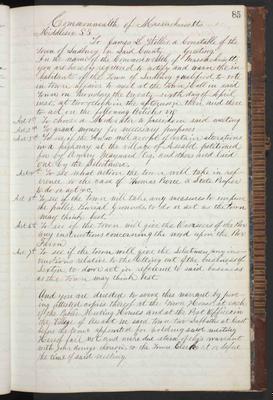 85
Commonwealth of Massachusetts
Middlesex SS
To James L. Willis a Constable of the
Town of Sudbury in Said County Greeting
In the name of the Commonwealth of Massachusetts
you are hereby required to notify and warn the in-
habitants of the Town of Sudbury qualified to vote
in town affairs to meet at the Town Hall in said
Town on Monday the day of April
inst, at two o'clock in the afternoon, then and there
to act on the following Articles viz
Art 1st To choose a Moderator to preside in said meeting
Art 2d To grant money for necessary purposes
Art 3d To see if the Town will accept of certain alterations
in a highway at the village of Assabet petitioned
for by Amory Maynard Esq and others and laid
out by the Selectmen
Art 4th To see what action the town will take in ref-
erence to the case of Thomas Pierce a State Pauper
to do or act &c,
Art 5th To see if the town will take any measures to improve
the public burial grounds to do or act as the town
may think best
Art 6th To see if the town will give the Overseers of the Poor
any instructions concerning the and upon the Poor
Farm
Art 7th To see if the town will give the Selectmen any ins-
tructions relative to the of the business of
Sexton to do or act in reference to said business
as the Town may think best
And you are directed to serve this warrant by post-
ing attested copies thereof at the Town House at each
of the Public Meeting Houses and at the Post Office in
the Village of Assabet in said town two Sabbaths at least
before the time appointed for holding said meeting
Hereof fail not and make due return of this warrant
with your doings thereon to the Town Clerk at or before
the time of said meeting